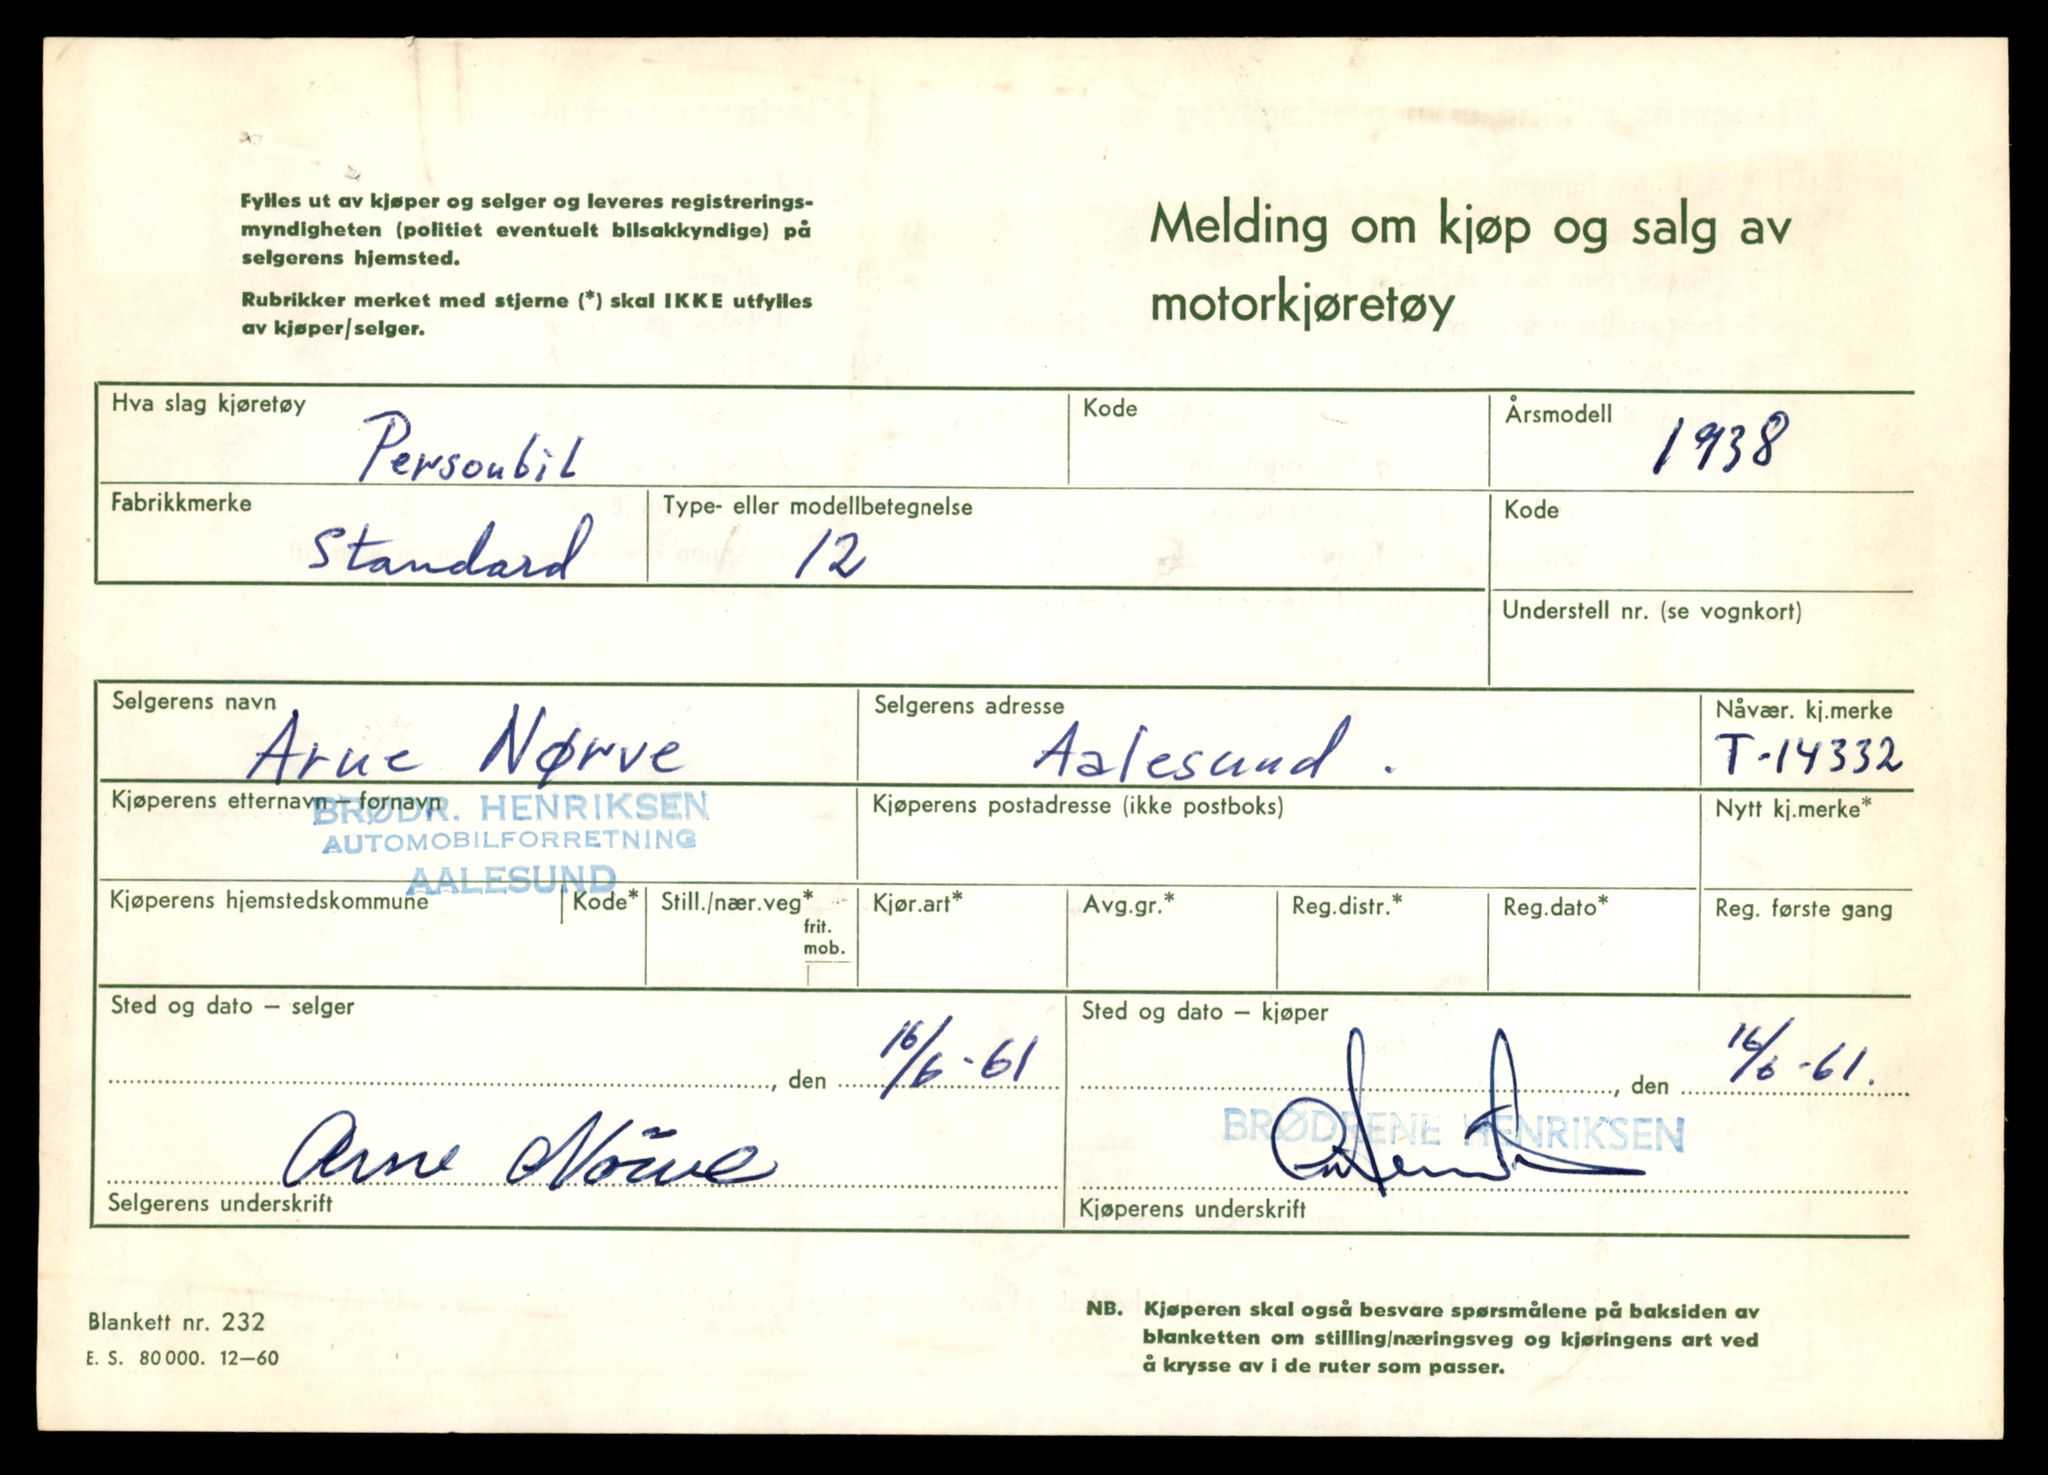 Fylles ut av kjøper og selger og leveres registrerings-
myndigheten (politiet eventuelt bilsakkyndige) på
selgerens hjemsted.
Rubrikker merket med stjerne (*) skal IKKE utfylles
av kjøper/selger.
Melding om kjøp og salg av
motorkjøretøy
Hva slag kjøretøy
Personbil
Kode
Årsmodell
1938
Fabrikkmerke
Standard
Type- eller modellbetegnelse
12
Kode
Understell nr. (se vognkort)
Selgerens navn
Arne Nørve
Selgerens adresse
Aalesund.
Nåvær. kj.merke
T-14332
Kjøperens etternavn – fornavn
BRØDR. HENRIKSEN
AUTOMOBILFORRETNING
AALESUND
Kjøperens postadresse (ikke postboks)
Nytt kj.merke*
Kjøperens hjemstedskommune
Kode*
Still./nær.veg*
frit.
mob.
Kjør.art*
Avg.gr.*
Reg.distr.*
Reg.dato*
Reg. første gang
Sted og dato – selger
, den 16/6-61
Arne Nörve
Selgerens underskrift
Sted og dato – kjøper
, den 16/6-61.
BRØDRENE HENRIKSEN
Kjøperens underskrift
Blankett nr. 232
E. S. 80 000. 12–60
NB. Kjøperen skal også besvare spørsmålene på baksiden av
blanketten om stilling/næringsveg og kjøringens art ved
å krysse av i de ruter som passer.